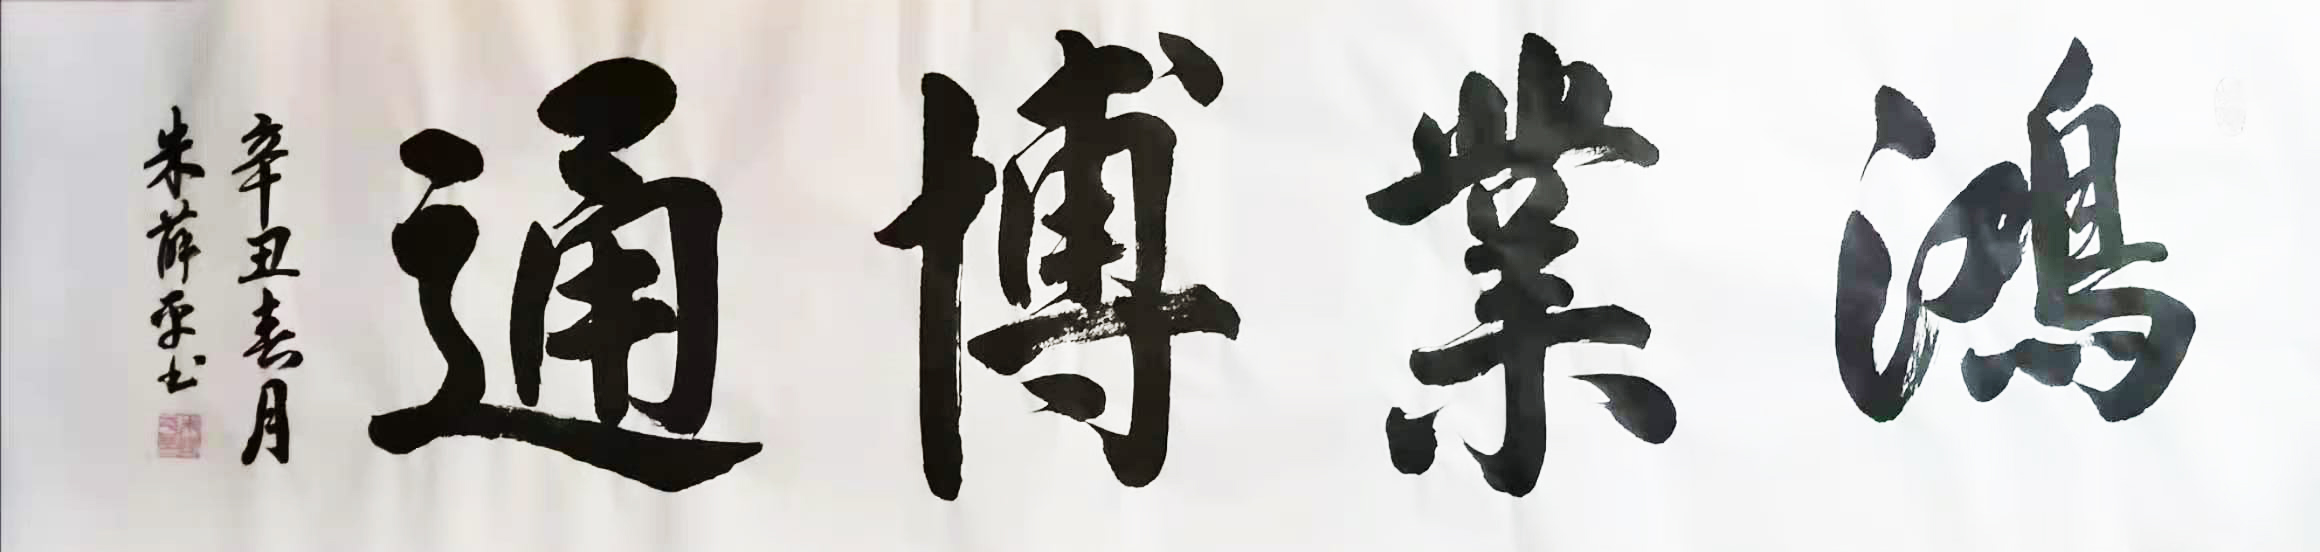 鴻業博通
辛丑春月
朱薛平书